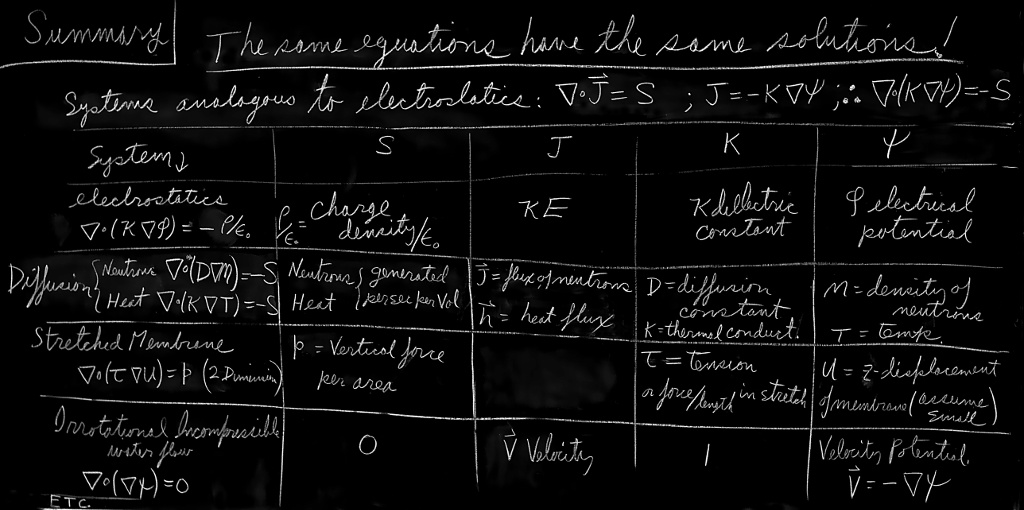 Summary
The same equations have the same solutions!
Systems analogous to electrostatics: ∇∘J⃗ = S ; J = -K∇ψ ; ∴ ∇∘(K∇ψ) = -S
System↓ S J K ψ
electrostatics
∇∘(K∇φ) = -ρ/ε₀
ρ/ε₀ = Charge
density/ε₀
KE
K dielectric
constant
φ electrical
potential
Diffusion { Neutrons ∇∘(D∇n) = -S
Heat ∇∘(K∇T) = -S
Neutrons { generated
Heat per sec per Vol
J⃗ = flux of neutrons
h⃗ = heat flux
D = diffusion
constant
K = thermal conduct.
n = density of
neutrons
T = temp.
Stretched Membrane
∇∘(τ∇u) = p (2 Dimension)
p = Vertical force
per area
τ = Tension
or force/length in stretch
u = z-displacement
of membrane (assume
small)
Irrotational Incompressible
water flow
∇∘(∇ψ) = 0
0
v⃗ Velocity
1
Velocity Potential.
v⃗ = -∇ψ
ETC.